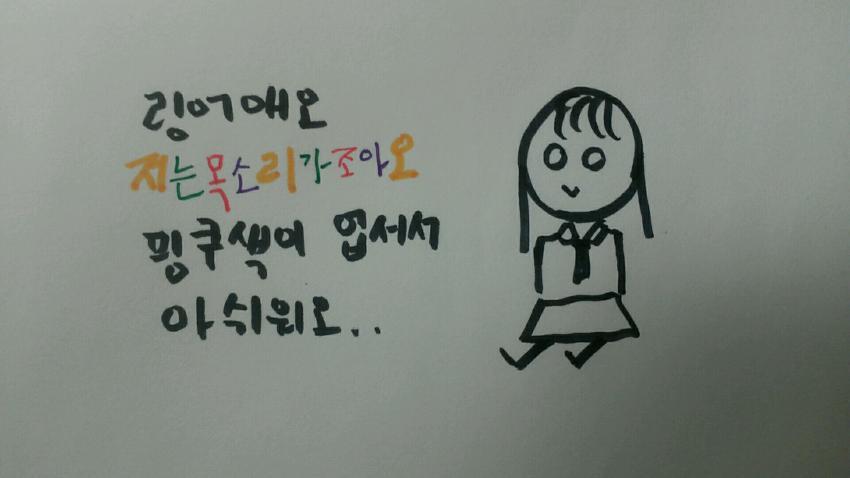 링어애오
지는목소리가조아오
핑쿠색이 업세서
아쉬워오..